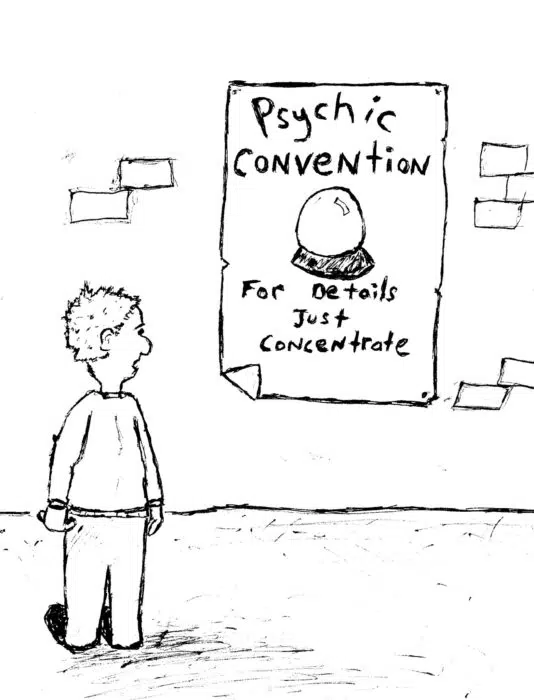 Psychic
Convention
For Details
Just
Concentrate